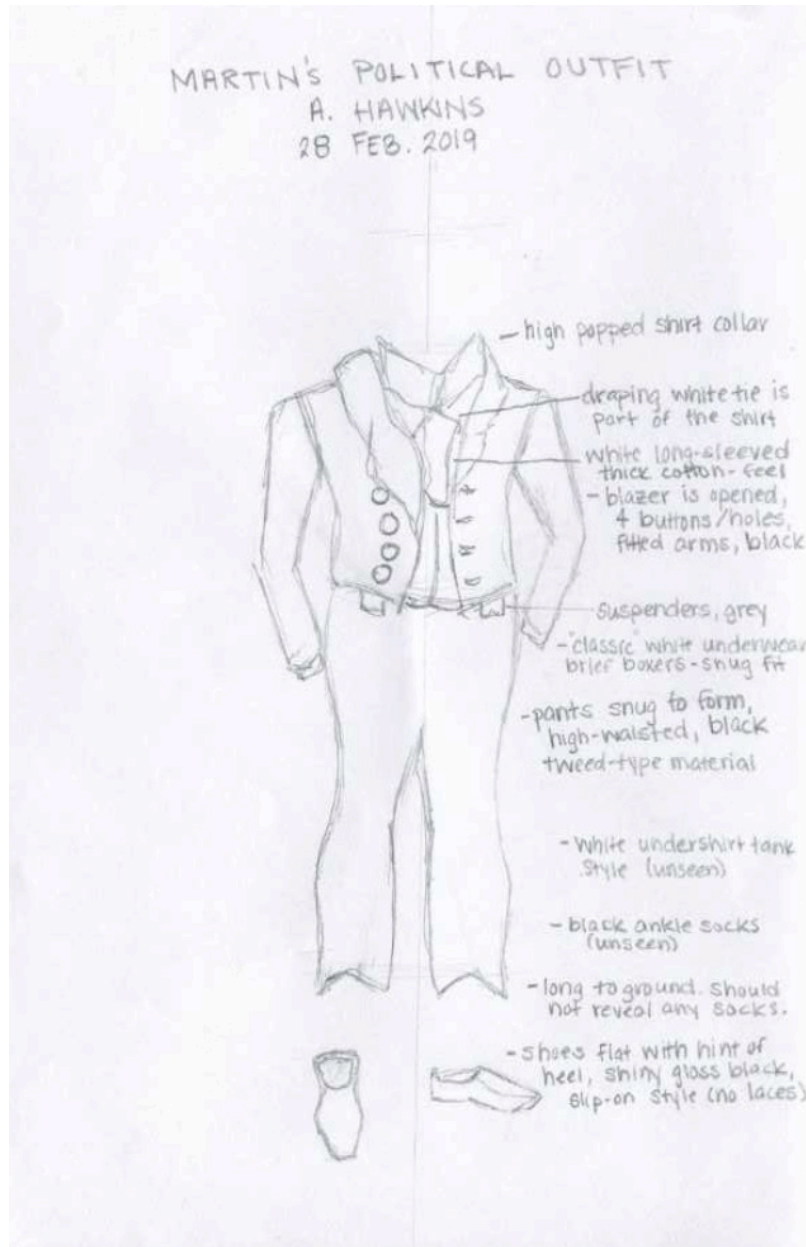 MARTIN'S POLITICAL OUTFIT
A. HAWKINS
28 FEB. 2019
- high popped shirt collar
draping white tie is
part of the shirt
white long-sleeved
thick cotton-feel
- blazer is opened,
4 buttons/holes,
fitted arms, black
suspenders, grey
- "classic" white underwear
brief boxers - snug fit
- pants snug to form,
high-waisted, black
tweed-type material
- White undershirt tank
style (unseen)
- black ankle socks
(unseen)
- long to ground. should
not reveal any socks.
- shoes flat with hint of
heel, shiny gloss black,
slip-on style (no laces)